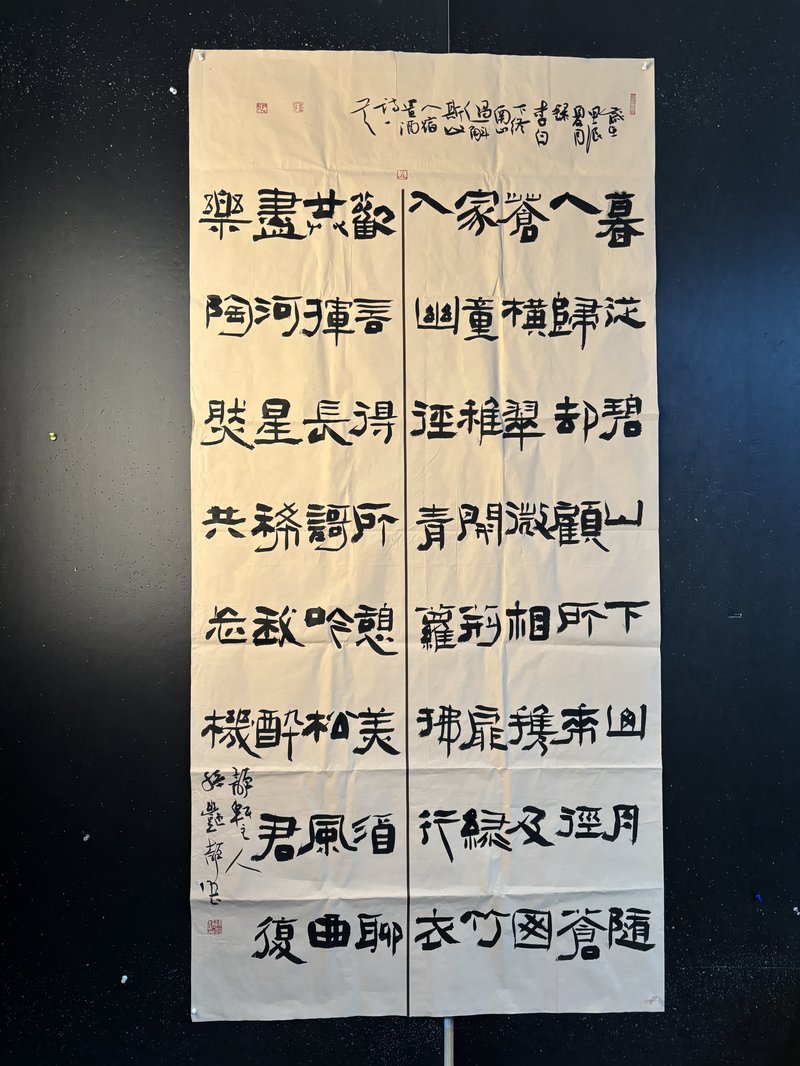 歲在
甲辰
夏月
録
李白
下終
南山
過斛
斯山
人宿
置酒
詩一
暮從碧山下山月隨
人歸却顧所來徑蒼
蒼橫翠微相攜及田
家童稚開荊扉綠竹
入幽徑青蘿拂行衣
歡言得所憩美酒聊
共揮長謌吟松風曲
盡河星稀我醉君復
樂陶然共忘機
靜軒主人